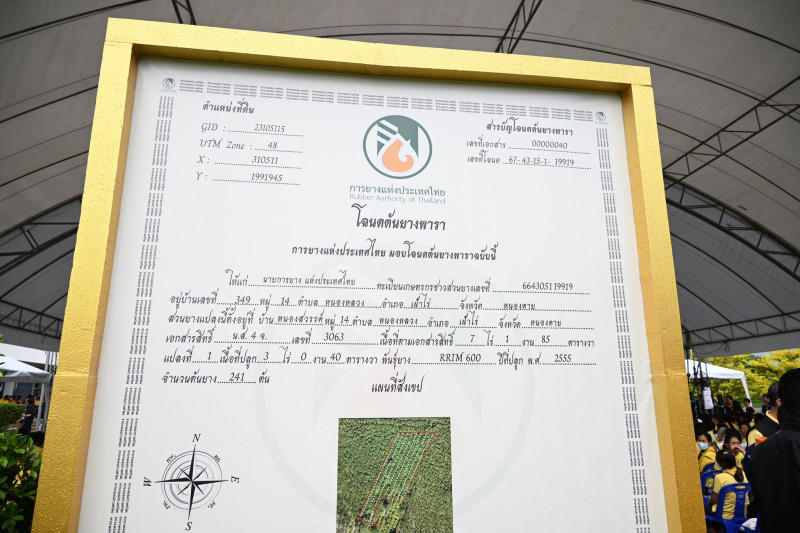 ตำแหน่งที่ดิน
GID : 23105115
UTM Zone : 48
X : 310511
Y : 1991945
สารบัญโฉนดต้นยางพารา
เลขที่เอกสาร 00000040
เลขที่โฉนด 67-43-15-1- 19919
การยางแห่งประเทศไทย
Rubber Authority of Thailand
โฉนดต้นยางพารา
การยางแห่งประเทศไทย มอบโฉนดต้นยางพาราฉบับนี้
ให้แก่ นายการยาง แห่งประเทศไทย ทะเบียนเกษตรกรชาวสวนยางเลขที่ 664305119919
อยู่บ้านเลขที่ 349 หมู่ 14 ตำบล หนองหลวง อำเภอ เฝ้าไร่ จังหวัด หนองคาย
สวนยางแปลงนี้ตั้งอยู่ที่ บ้าน หนองสวรรค์ หมู่ 14 ตำบล หนองหลวง อำเภอ เฝ้าไร่ จังหวัด หนองคาย
เอกสารสิทธิ์ น.ส. 4 จ. เลขที่ 3063 เนื้อที่ตามเอกสารสิทธิ์ 7 ไร่ 1 งาน 85 ตารางวา
แปลงที่ 1 เนื้อที่ปลูก 3 ไร่ 0 งาน 40 ตารางวา พันธุ์ยาง RRIM 600 ปีที่ปลูก พ.ศ. 2555
จำนวนต้นยาง 241 ต้น
แผนที่สังเขป
N
W
E
S